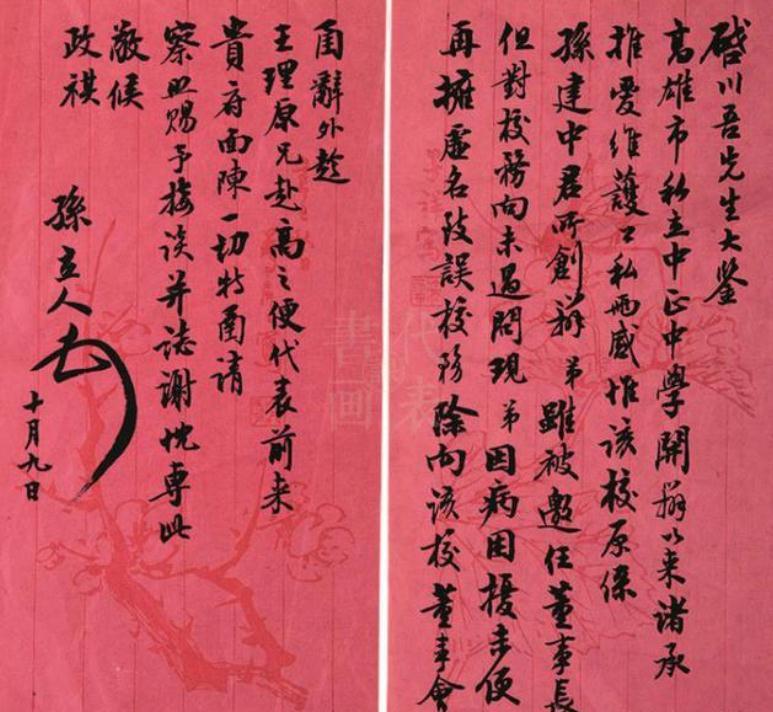 啓川吾先生大鑒
高雄市私立中正中學開辦以來諸承
推愛維護公私兩感惟該校原係
孫建中君所創辦弟雖被邀任董事長
但對校務向未過問現弟因病困擾未便
再擁虛名致誤校務除向該校董事會
函辭外趁
王理原兄赴高之便代表前来
貴府面陳一切特函請
察照賜予接談并誌謝忱專此
敬候
政祺
孫立人
十月九日
代表
書画